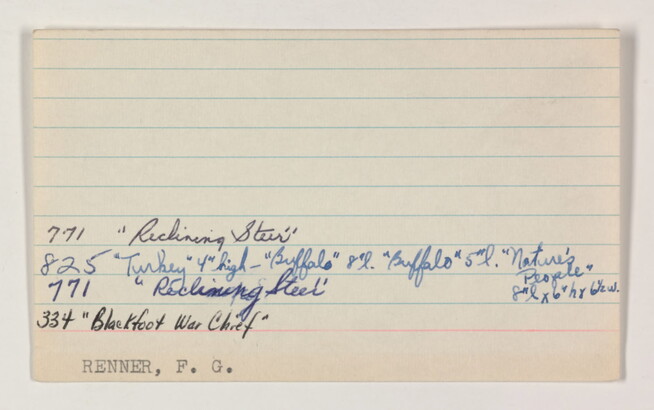 771 "Reclining Steer"
825 "Turkey" 4" high - "Buffalo" 8"l. "Buffalo" 5"l. "Nature's
People"
771 "Reclining Steer"
8"l x 6"h x 6½w.
334 "Blackfoot War Chief"
RENNER, F. G.